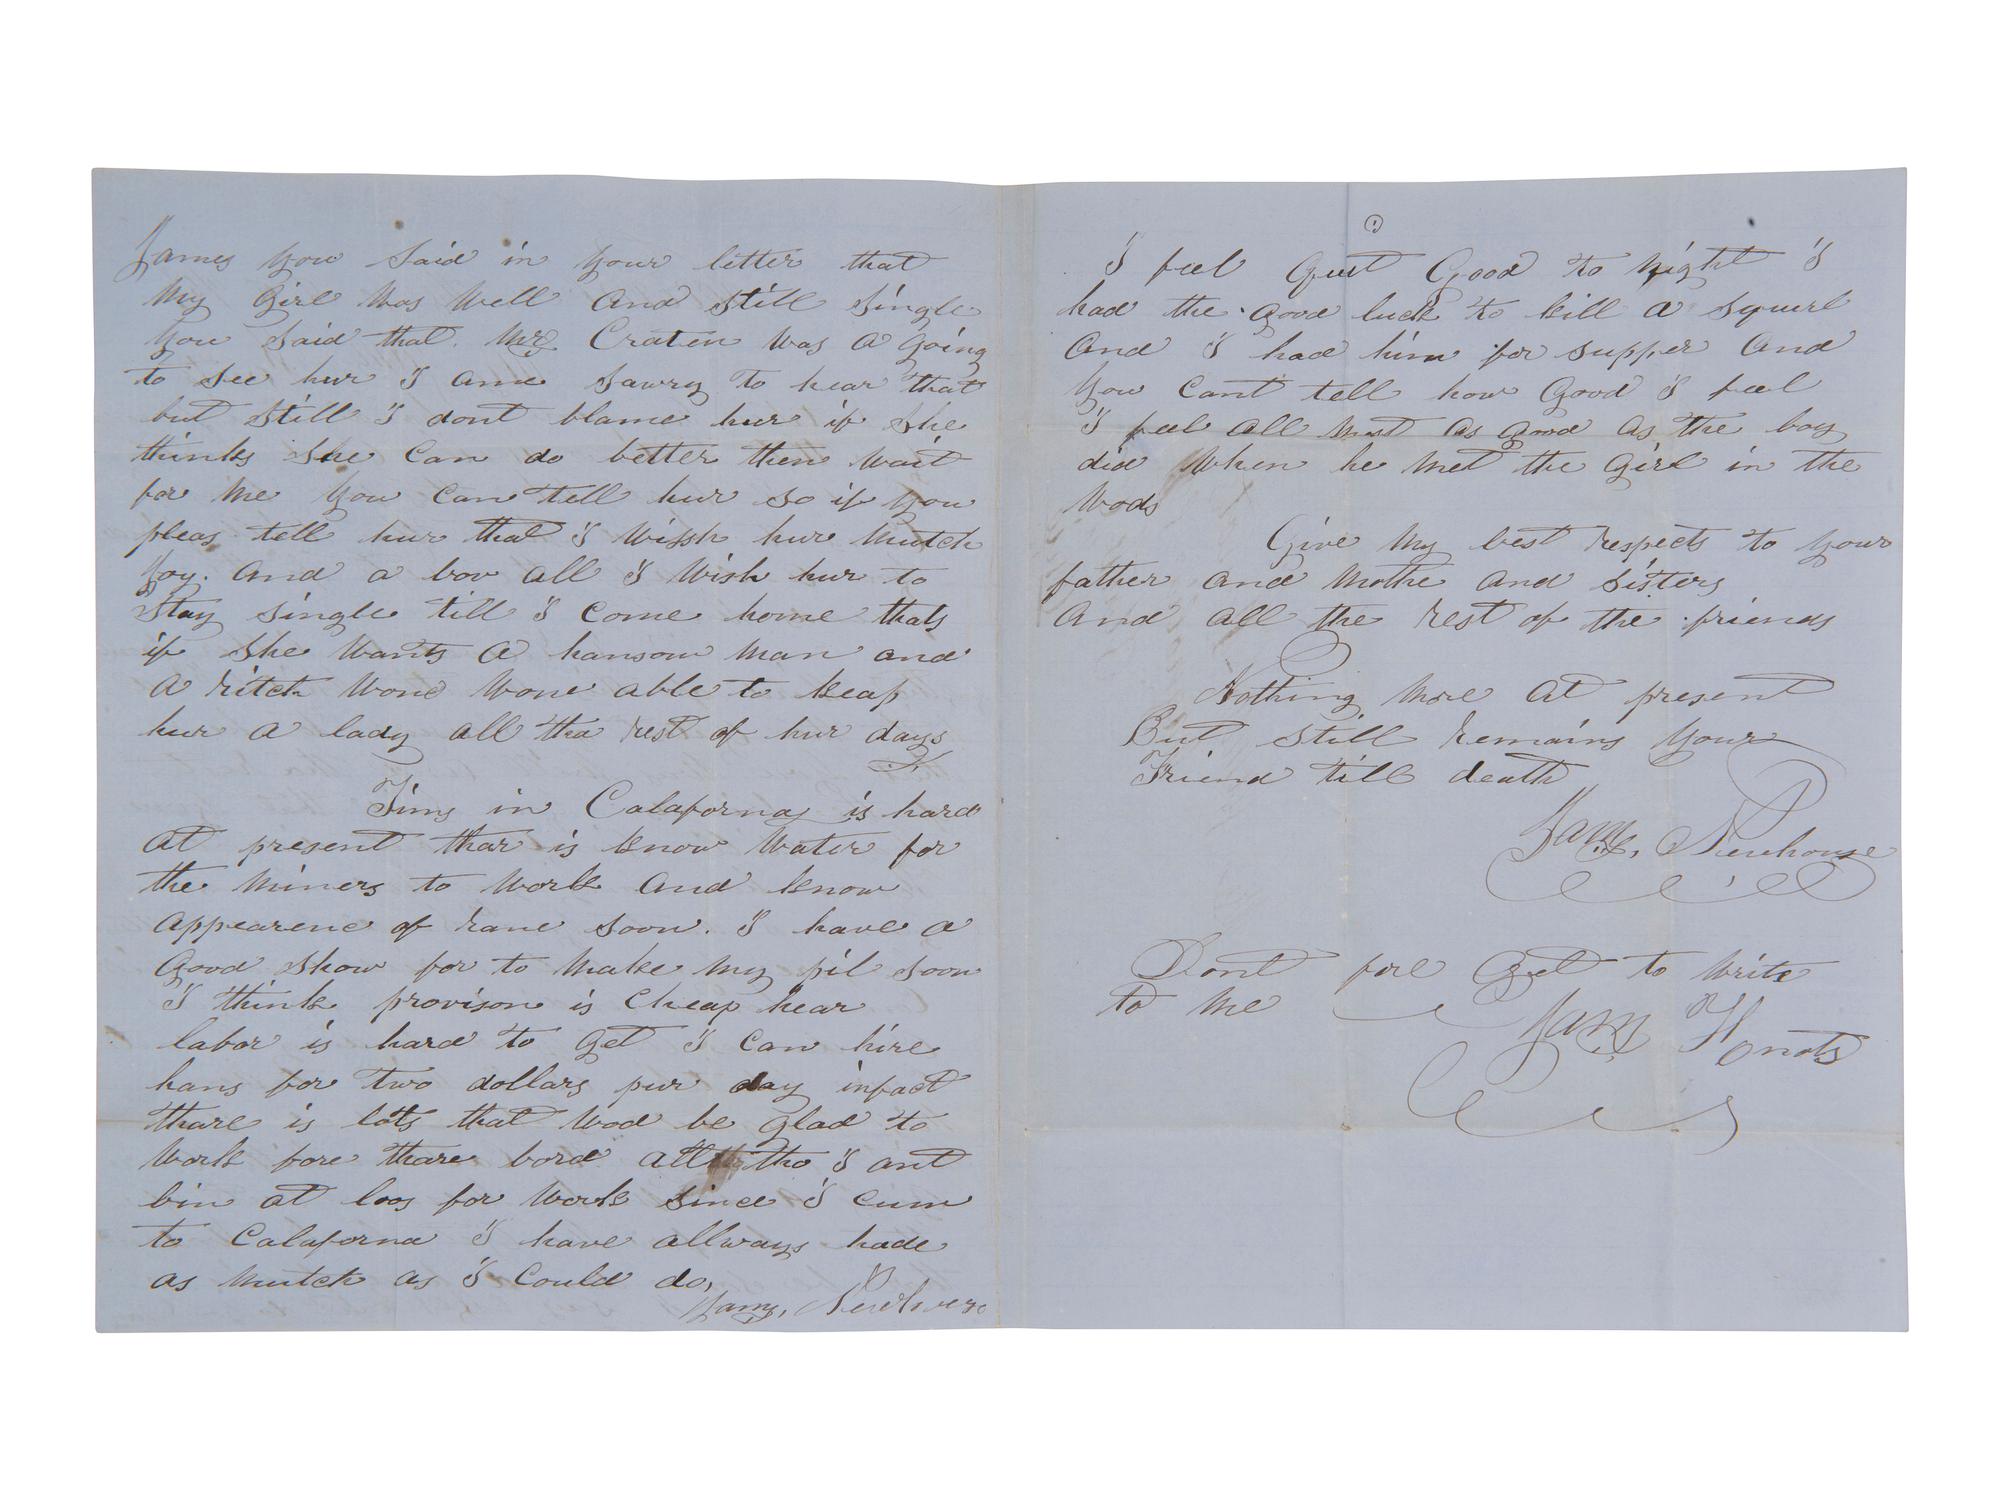 James you said in your letter that
my girl was well and still single
you said that Mr Craten was a going
to see hur I ame sawry to hear that
but still I dont blame hur if she
thinks she can do better then wait
for me you can tell hur so if you
pleas tell hur that I wissh hur mutch
joy. and a bov all I wish hur to
stay single till I come home thats
if she wants a hansom man and
a ritch wone wone able to keap
hur a lady all tha rest of hur days
Tims in Calaforna is hard
at present thar is know water for
the miners to work and know
appearenc of rane soon. I have a
good show for to make my pil soon
I think provison is cheap hear
labor is hard to get I can hire
hans for two dollars pur day infact
thare is lots that wod be glad to
work fore thare bord all tho I ant
bin at loos for work since I cum
to Calaforna I have allways hade
as mutch as I could do,
Jams, Newhouse
I feel quit good to night I
had the good luck to kill a squirl
and I had him for supper and
you cant tell how good I feel
I feel all most as good as the boy
did when he met the girl in the
wods
Give my best respects to your
father and mothe and sisters
and all the rest of the friends
Nothing more at present
But still remains your
Friend till death
Jams, Newhouse
Dont fore get to write
to me
Jams